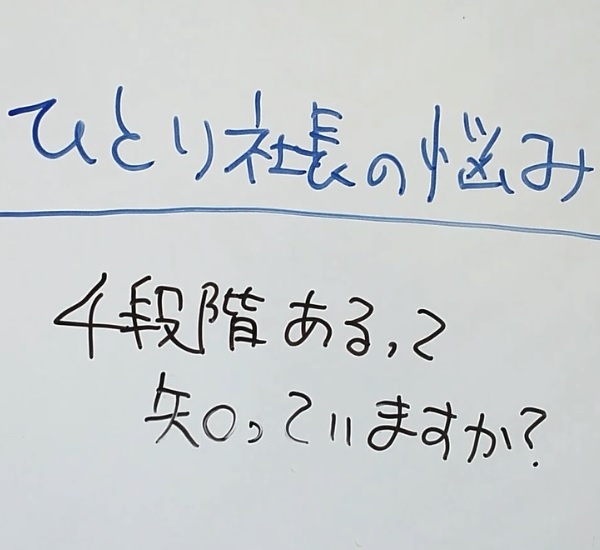 ひとり社長の悩み
4段階あるって
知っていますか?